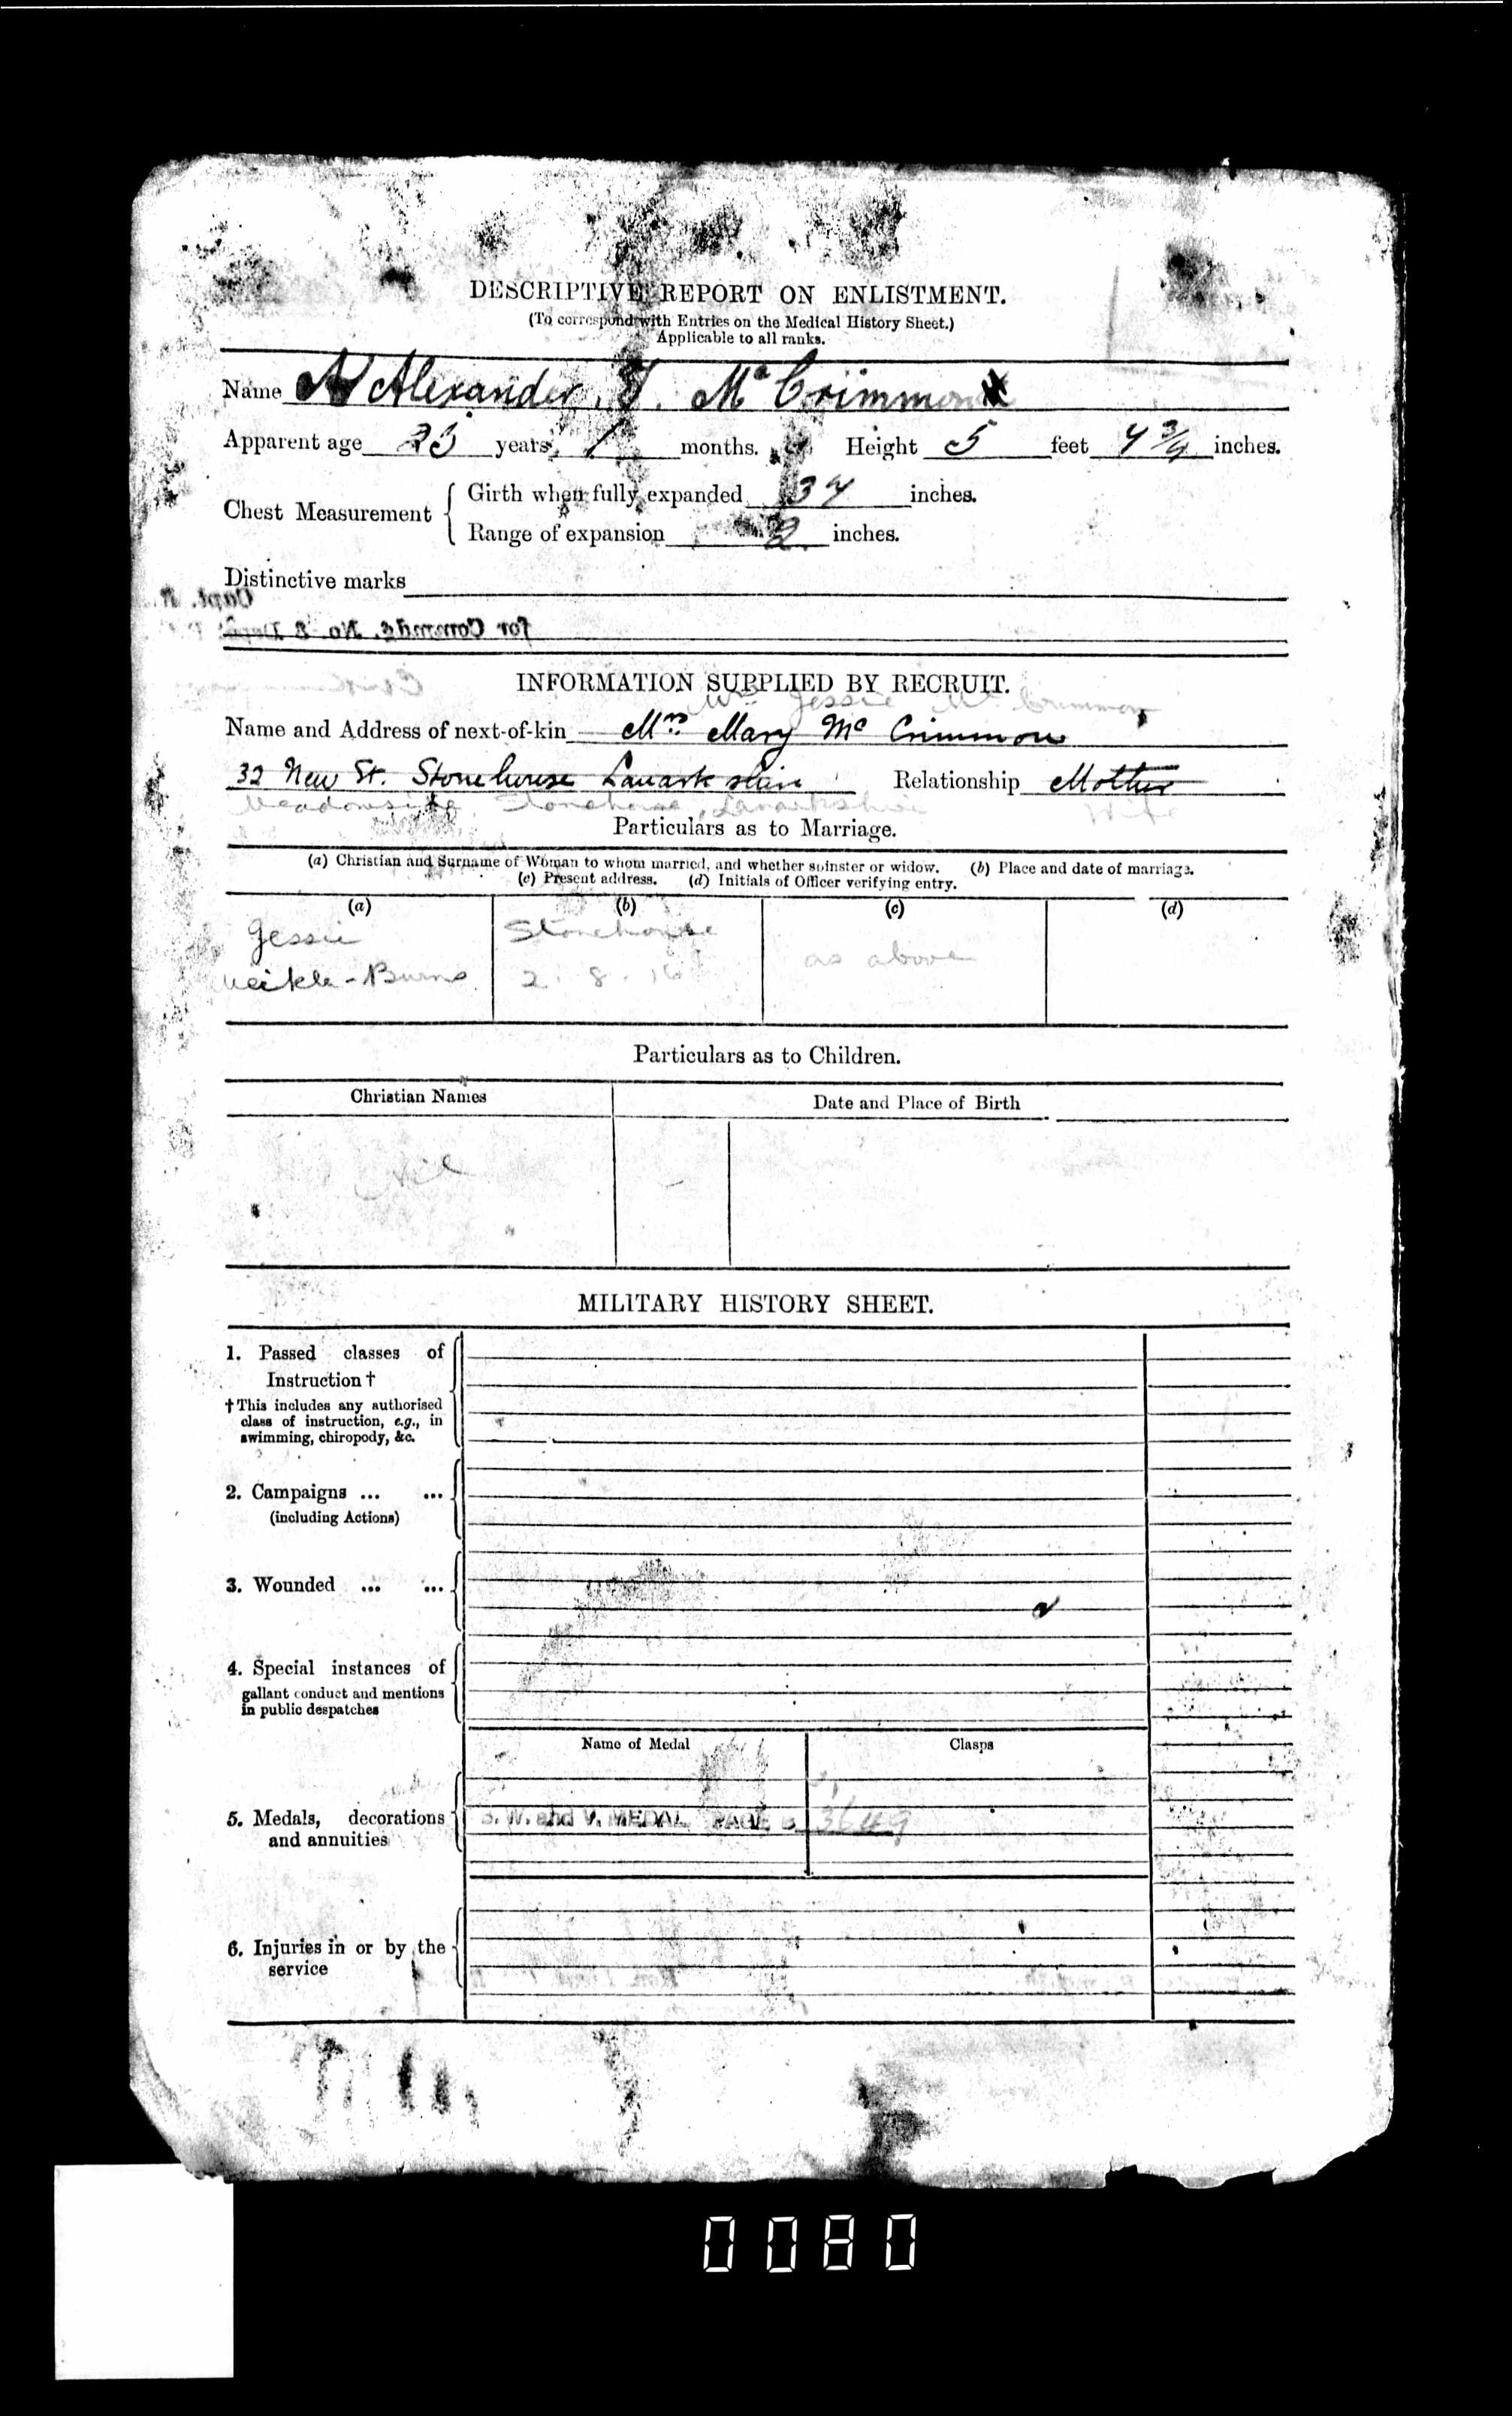 DESCRIPTIVE REPORT ON ENLISTMENT.
(To correspond with Entries on the Medical History Sheet.)
Applicable to all ranks.
Name Alexander McCrimmon
Apparent age 23 years, 1 months. Height 5 feet 4 3/4 inches.
Chest Measurement
Girth when fully expanded 34 inches.
Range of expansion 2 inches.
Distinctive marks
Capt.
for Commdg. No. 8
INFORMATION SUPPLIED BY RECRUIT.
Mrs Jessie Mc Crimmon
Name and Address of next-of-kin Mrs Mary Mc Crimmon
32 New St. Stonehouse Lanarkshire Relationship Mother
Meadowside Stonehouse, Lanarkshire Wife
Particulars as to Marriage.
(a) Christian and Surname of Woman to whom married, and whether spinster or widow. (b) Place and date of marriage.
(c) Present address. (d) Initials of Officer verifying entry.
(a) (b) (c) (d)
Jessie Stonehouse as above
Meikle-Burns 2. 8. 16
Particulars as to Children.
Christian Names Date and Place of Birth
Nil
MILITARY HISTORY SHEET.
1. Passed classes of
Instruction †
† This includes any authorised
class of instruction, e.g., in
swimming, chiropody, &c.
2. Campaigns ... ...
(including Actions)
3. Wounded ... ...
4. Special instances of
gallant conduct and mentions
in public despatches
Name of Medal Clasps
5. Medals, decorations
and annuities
B. W. and V. MEDAL PAGE 3649
6. Injuries in or by the
service
0080